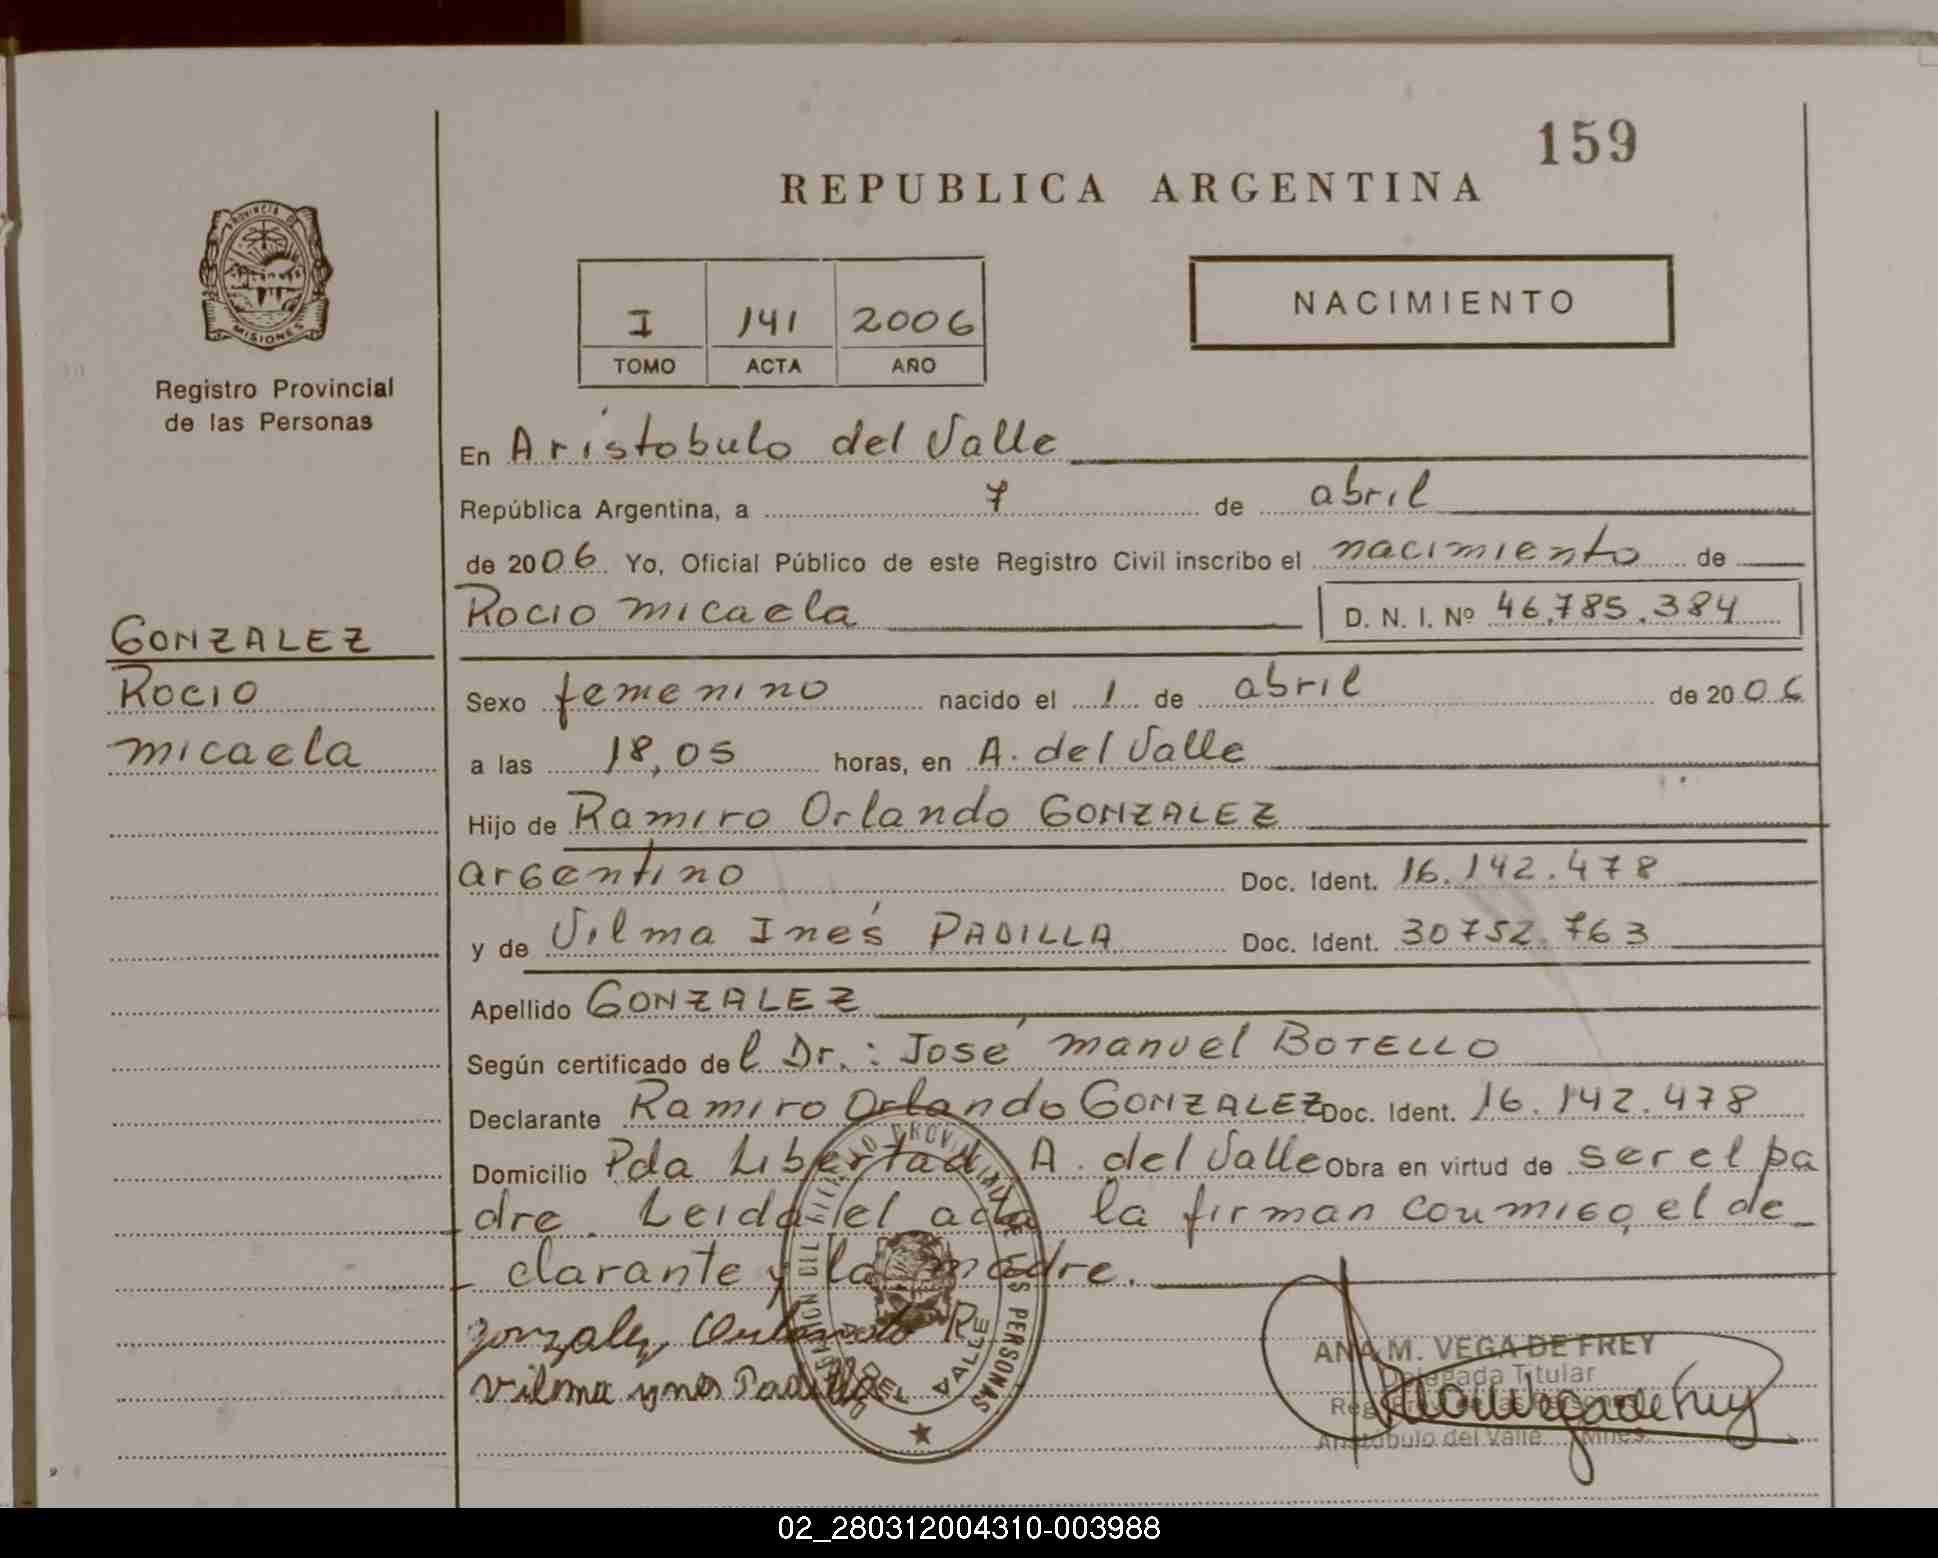 159
REPUBLICA ARGENTINA
PROVINCIA DE
MISIONES
Registro Provincial
de las Personas
I 141 2006
TOMO ACTA AÑO
NACIMIENTO
En Aristobulo del Valle
República Argentina, a 7 de abril
de 2006 Yo, Oficial Público de este Registro Civil inscribo el nacimiento de
Rocio micaela D. N. I. Nº 46.785.384
GONZALEZ
Rocio
micaela
Sexo femenino nacido el 1 de abril de 2006
a las 18,05 horas, en A. del Valle
Hijo de Ramiro Orlando GONZALEZ
argentino Doc. Ident. 16.142.478
y de Vilma Inés PADILLA Doc. Ident. 30752.763
Apellido GONZALEZ
Según certificado del Dr.: José manuel BOTELLO
Declarante Ramiro Orlando GONZALEZ Doc. Ident. 16.142.478
Domicilio Pda Libertad A. del Valle Obra en virtud de ser el pa
dre. Leida el acta la firman conmigo, el de_
clarante y la madre.
gonzalez Orlando R
Vilma ynes Padilla
DEL VALLE
LAS PERSONAS
ANA M. VEGA DE FREY
Delegada Titular
Reg. Prov. de las Personas
Aristobulo del Valle Mnes.
02_280312004310-003988